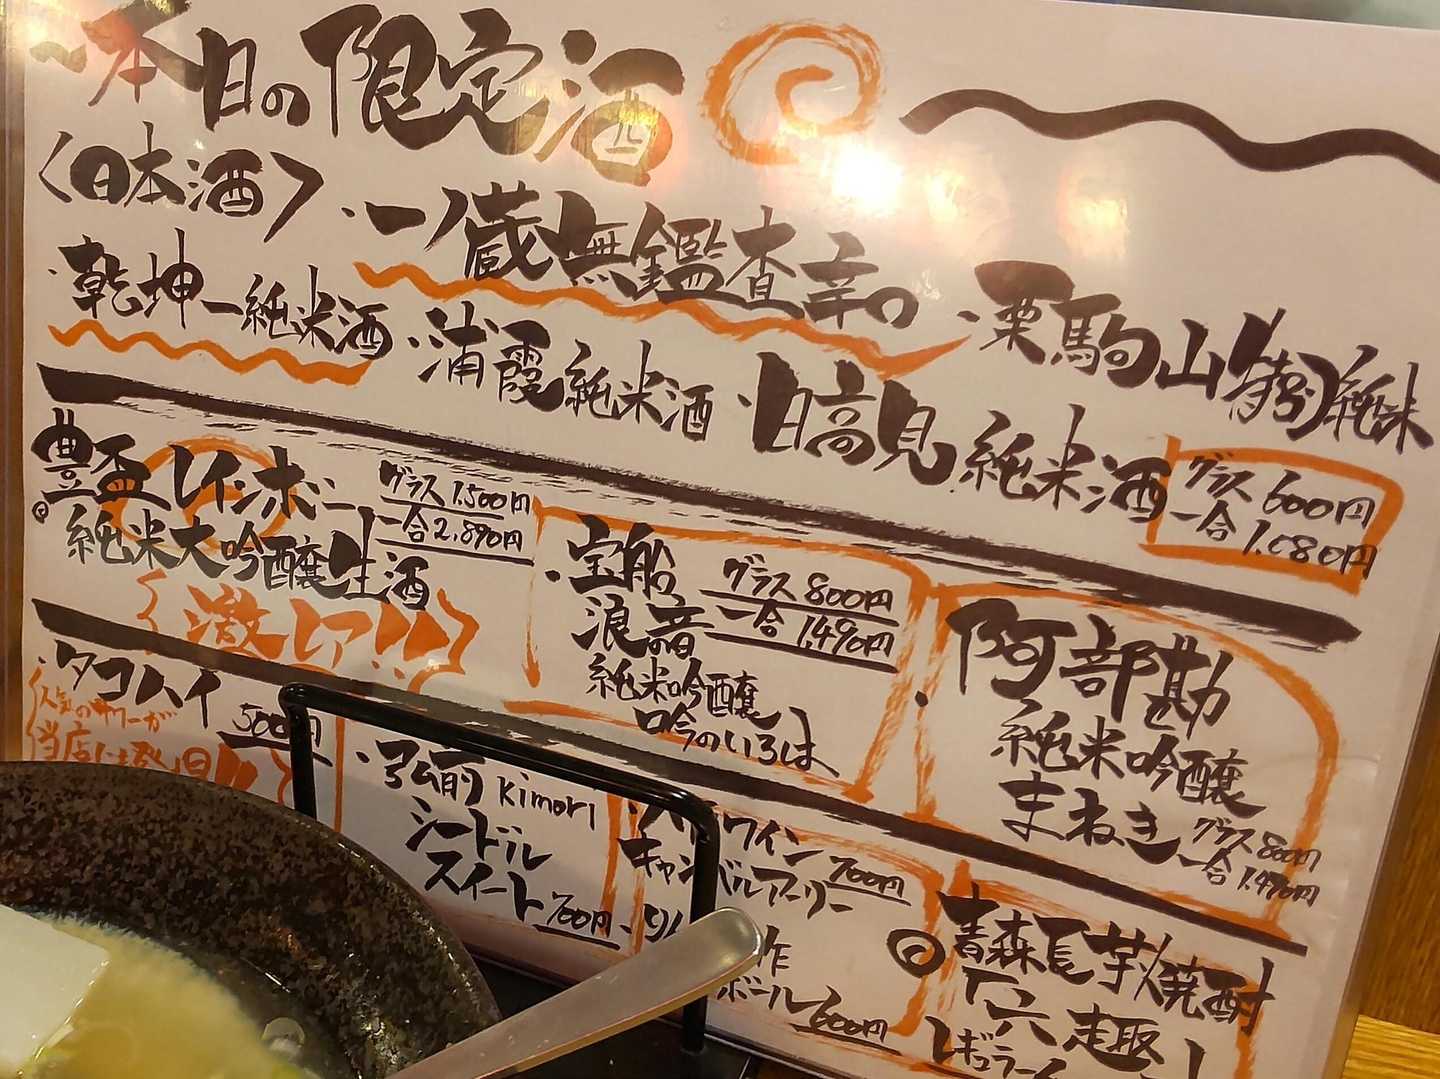 本日の限定酒
〈日本酒〉・一ノ蔵無鑑査辛口・栗駒山特別純米
・乾坤一純米酒・浦霞純米酒・日高見純米酒
グラス600円
一合1.080円
豊盃レインボー
純米大吟醸生酒
グラス1.500円
一合2.890円
激レア!!
・宝船
浪の音
純米吟醸
吟のいろは
グラス800円
一合1.490円
・阿部勘
純米吟醸
まねき
グラス800円
一合1.490円
・タコハイ
500円
人気のサワーが
当店に登場!!
・弘前kimori
シードル
スイート700円
ワイン700円
キャンベルアーリー
ボール600円
青森長芋焼酎
六趣
レギュラー